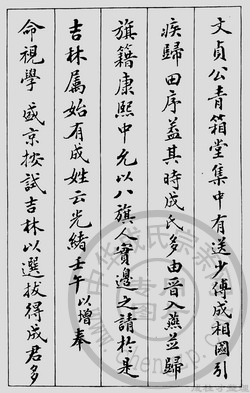 文贞公青箱堂集中有送少傅成相國引
疾歸田序蓋其時成氏多由晉入燕並歸
旗籍康熙中允以八旗人實邊之請於是
吉林属始有成姓云光緒壬午以增奉
命視學盛京按試吉林以選拔得成君多